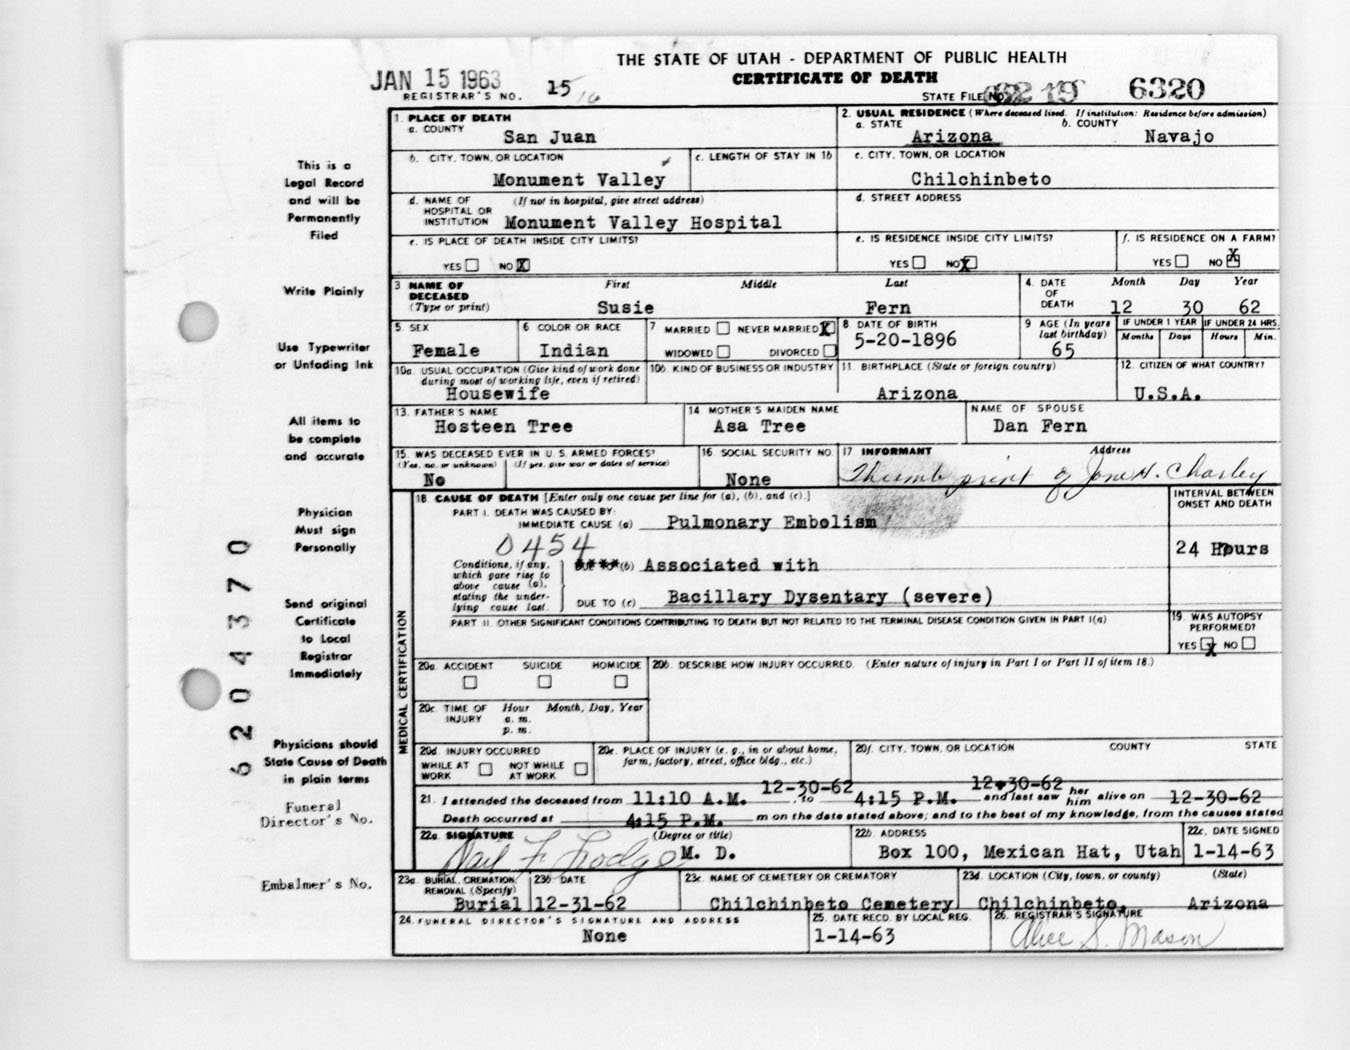 THE STATE OF UTAH - DEPARTMENT OF PUBLIC HEALTH
CERTIFICATE OF DEATH
JAN 15 1963
REGISTRAR'S NO. 15 16
STATE FILE NO. 6320
1. PLACE OF DEATH
a. COUNTY San Juan
2. USUAL RESIDENCE (Where deceased lived. If institution: Residence before admission)
a. STATE Arizona b. COUNTY Navajo
b. CITY, TOWN, OR LOCATION Monument Valley
c. LENGTH OF STAY IN 1b
c. CITY, TOWN, OR LOCATION Chilchinbeto
d. NAME OF HOSPITAL OR INSTITUTION (If not in hospital, give street address) Monument Valley Hospital
d. STREET ADDRESS
e. IS PLACE OF DEATH INSIDE CITY LIMITS? YES NO X
e. IS RESIDENCE INSIDE CITY LIMITS? YES NO X
f. IS RESIDENCE ON A FARM? YES NO X
3 NAME OF DECEASED (Type or print) First Susie Middle Last Fern
4. DATE OF DEATH Month 12 Day 30 Year 62
5. SEX Female
6 COLOR OR RACE Indian
7 MARRIED NEVER MARRIED X WIDOWED DIVORCED
8 DATE OF BIRTH 5-20-1896
9 AGE (In years last birthday) 65
IF UNDER 1 YEAR Months Days
IF UNDER 24 HRS. Hours Min.
10a. USUAL OCCUPATION (Give kind of work done during most of working life, even if retired) Housewife
10b. KIND OF BUSINESS OR INDUSTRY
11. BIRTHPLACE (State or foreign country) Arizona
12. CITIZEN OF WHAT COUNTRY? U.S.A.
13. FATHER'S NAME Hosteen Tree
14 MOTHER'S MAIDEN NAME Asa Tree
NAME OF SPOUSE Dan Fern
15. WAS DECEASED EVER IN U.S. ARMED FORCES? (Yes, no, or unknown) (If yes, give war or dates of service) No
16. SOCIAL SECURITY NO. None
17 INFORMANT Address Thumb print of Jone H. Charley
18. CAUSE OF DEATH [Enter only one cause per line for (a), (b), and (c).]
INTERVAL BETWEEN ONSET AND DEATH
PART I. DEATH WAS CAUSED BY:
IMMEDIATE CAUSE (a) Pulmonary Embolism
0454
24 Hours
Conditions, if any, which gave rise to above cause (a), stating the underlying cause last.
(b) Associated with
DUE TO (c) Bacillary Dysentary (severe)
PART II. OTHER SIGNIFICANT CONDITIONS CONTRIBUTING TO DEATH BUT NOT RELATED TO THE TERMINAL DISEASE CONDITION GIVEN IN PART I(a)
19. WAS AUTOPSY PERFORMED? YES X NO
MEDICAL CERTIFICATION
20a. ACCIDENT SUICIDE HOMICIDE
20b. DESCRIBE HOW INJURY OCCURRED. (Enter nature of injury in Part I or Part II of item 18.)
20c. TIME OF INJURY Hour a. m. p. m. Month, Day, Year
20d. INJURY OCCURRED WHILE AT WORK NOT WHILE AT WORK
20e. PLACE OF INJURY (e. g., in or about home, farm, factory, street, office bldg., etc.)
20f. CITY, TOWN, OR LOCATION COUNTY STATE
21. I attended the deceased from 11:10 A.M. 12-30-62, to 4:15 P.M. 12-30-62 and last saw her him alive on 12-30-62
Death occurred at 4:15 P.M. m on the date stated above; and to the best of my knowledge, from the causes stated
22a. SIGNATURE (Degree or title) M. D.
22b. ADDRESS Box 100, Mexican Hat, Utah
22c. DATE SIGNED 1-14-63
23a. BURIAL, CREMATION, REMOVAL (Specify) Burial
23b DATE 12-31-62
23c. NAME OF CEMETERY OR CREMATORY Chilchinbeto Cemetery
23d. LOCATION (City, town, or county) (State) Chilchinbeto, Arizona
24. FUNERAL DIRECTOR'S SIGNATURE AND ADDRESS None
25. DATE RECD. BY LOCAL REG. 1-14-63
26. REGISTRAR'S SIGNATURE Alice S. Mason
This is a
Legal Record
and will be
Permanently
Filed
Write Plainly
Use Typewriter
or Unfading Ink
All items to
be complete
and accurate
Physician
Must sign
Personally
Send original
Certificate
to Local
Registrar
Immediately
Physicians should
State Cause of Death
in plain terms
Funeral
Director's No.
Embalmer's No.
6204370